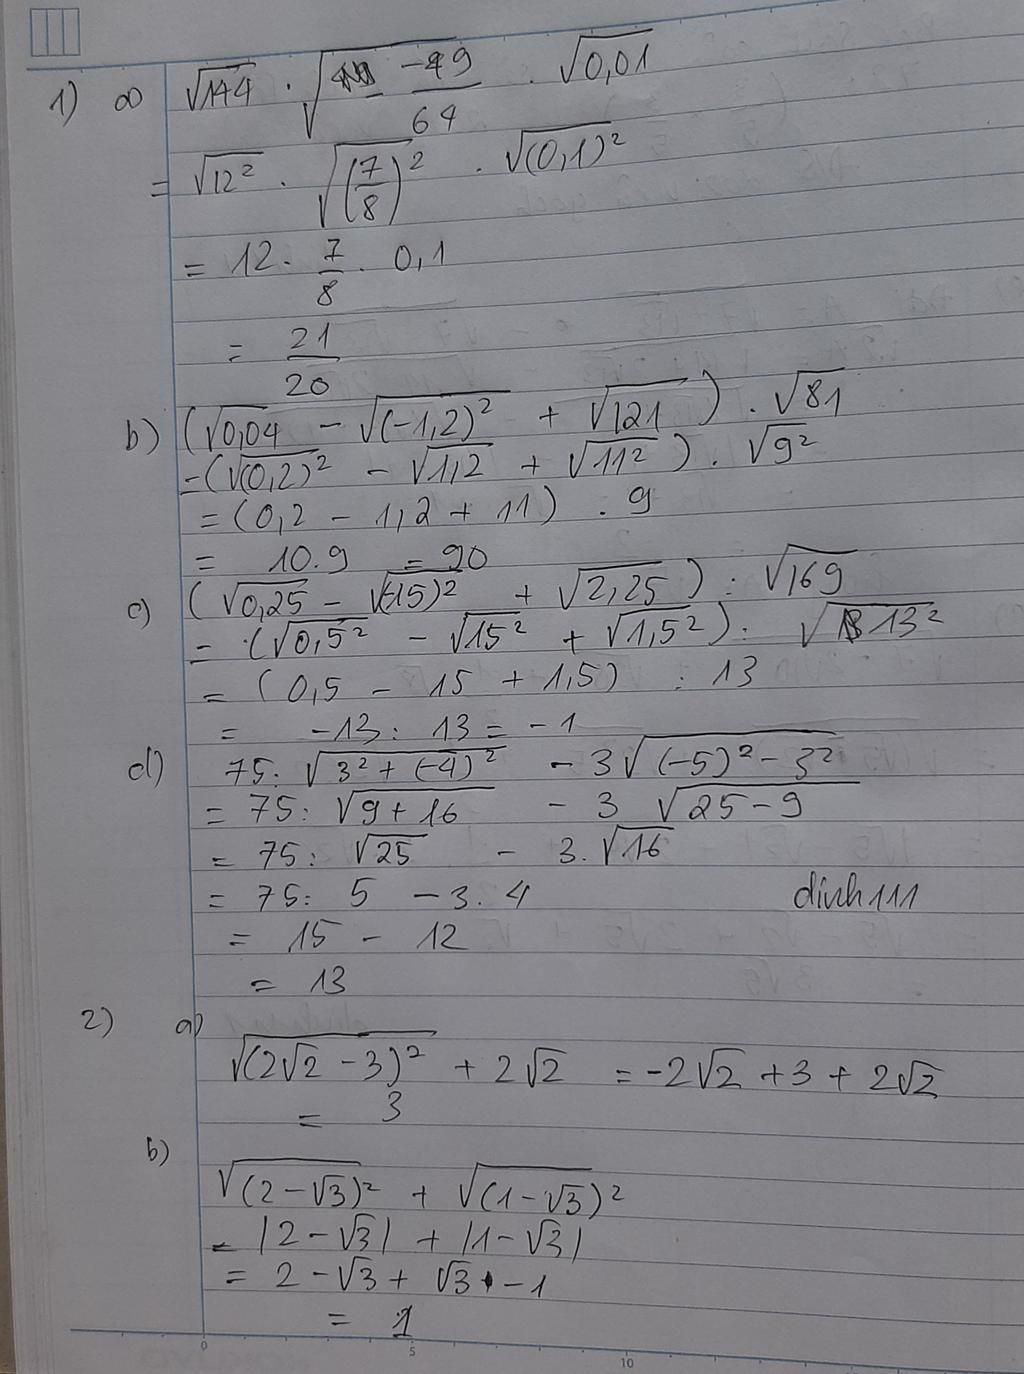 1) a) √144 . √(-49/64) . √0,01
= √12² . √(7/8)² . √(0,1)²
= 12 . 7/8 . 0,1
= 21/20
b) (√0,04 - √(-1,2)² + √121) . √81
= (√(0,2)² - √1,2 + √11²) . √9²
= (0,2 - 1,2 + 11) . 9
= 10.9 = 90
c) (√0,25 - √(-15)² + √2,25) : √169
= (√0,5² - √15² + √1,5²) : √13²
= (0,5 - 15 + 1,5) : 13
= -13 : 13 = -1
d) 75 : √3² + (-4)² - 3√(-5)² - 3²
= 75 : √9 + 16 - 3 √25 - 9
= 75 : √25 - 3.√16
= 75 : 5 - 3. 4
dinh111
= 15 - 12
= 13
2) a)
√(2√2 - 3)² + 2√2 = -2√2 + 3 + 2√2
= 3
b)
√(2 - √3)² + √(1 - √3)²
= |2 - √3| + |1 - √3|
= 2 - √3 + √3 - 1
= 1
0 5 10